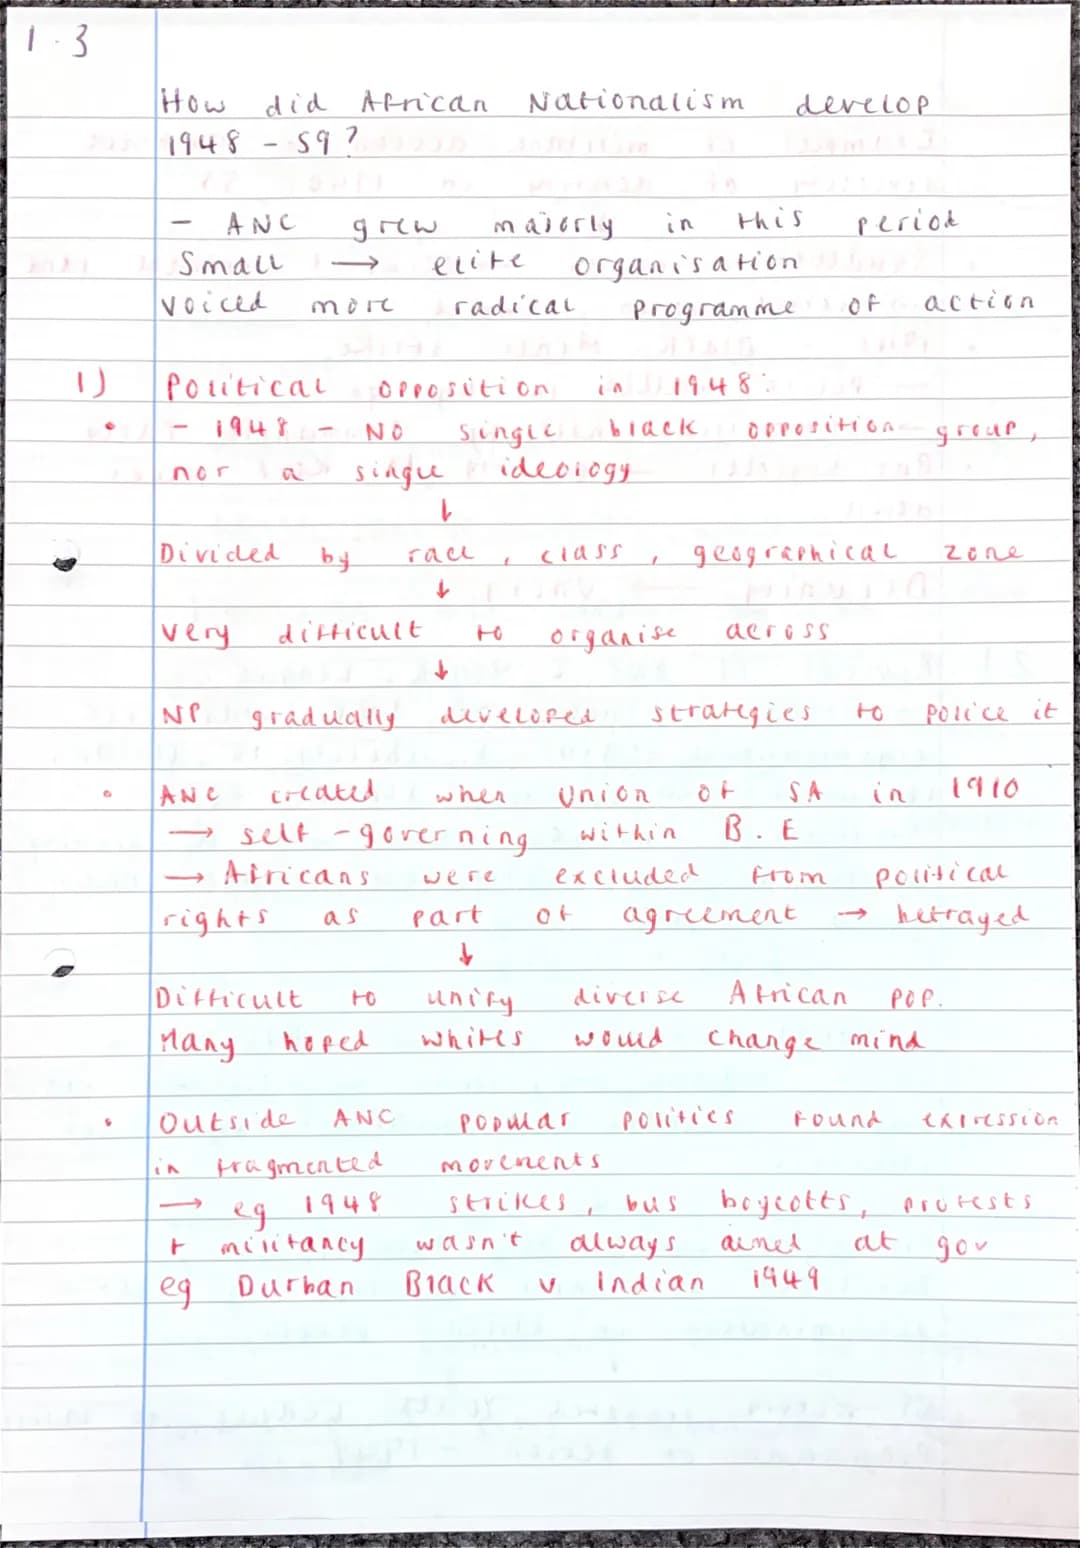 1.3
How did African Nationalism develop
1948 - 59?
- ANC grew majorly in this period
Small → elite organisation
Voiced more radical programme of action
1) Political opposition in 1948:
• - 1948 - NO single black opposition group,
nor a single ideology
↓
Divided by race, class, geographical zone
↓
very difficult to organise across
↓
NP gradually developed strategies to police it
• ANC created when Union of SA in 1910
→ self-governing within B.E
→ Africans were excluded from political
rights as part of agreement → betrayed
↓
Difficult to unify diverse African pop.
Many hoped whites would change mind
• Outside ANC popular politics found expression
in fragmented movements
→ eg 1948 strikes, bus boycotts, protests
+ militancy wasn't always aimed at gov
eg Durban Black v Indian 1949